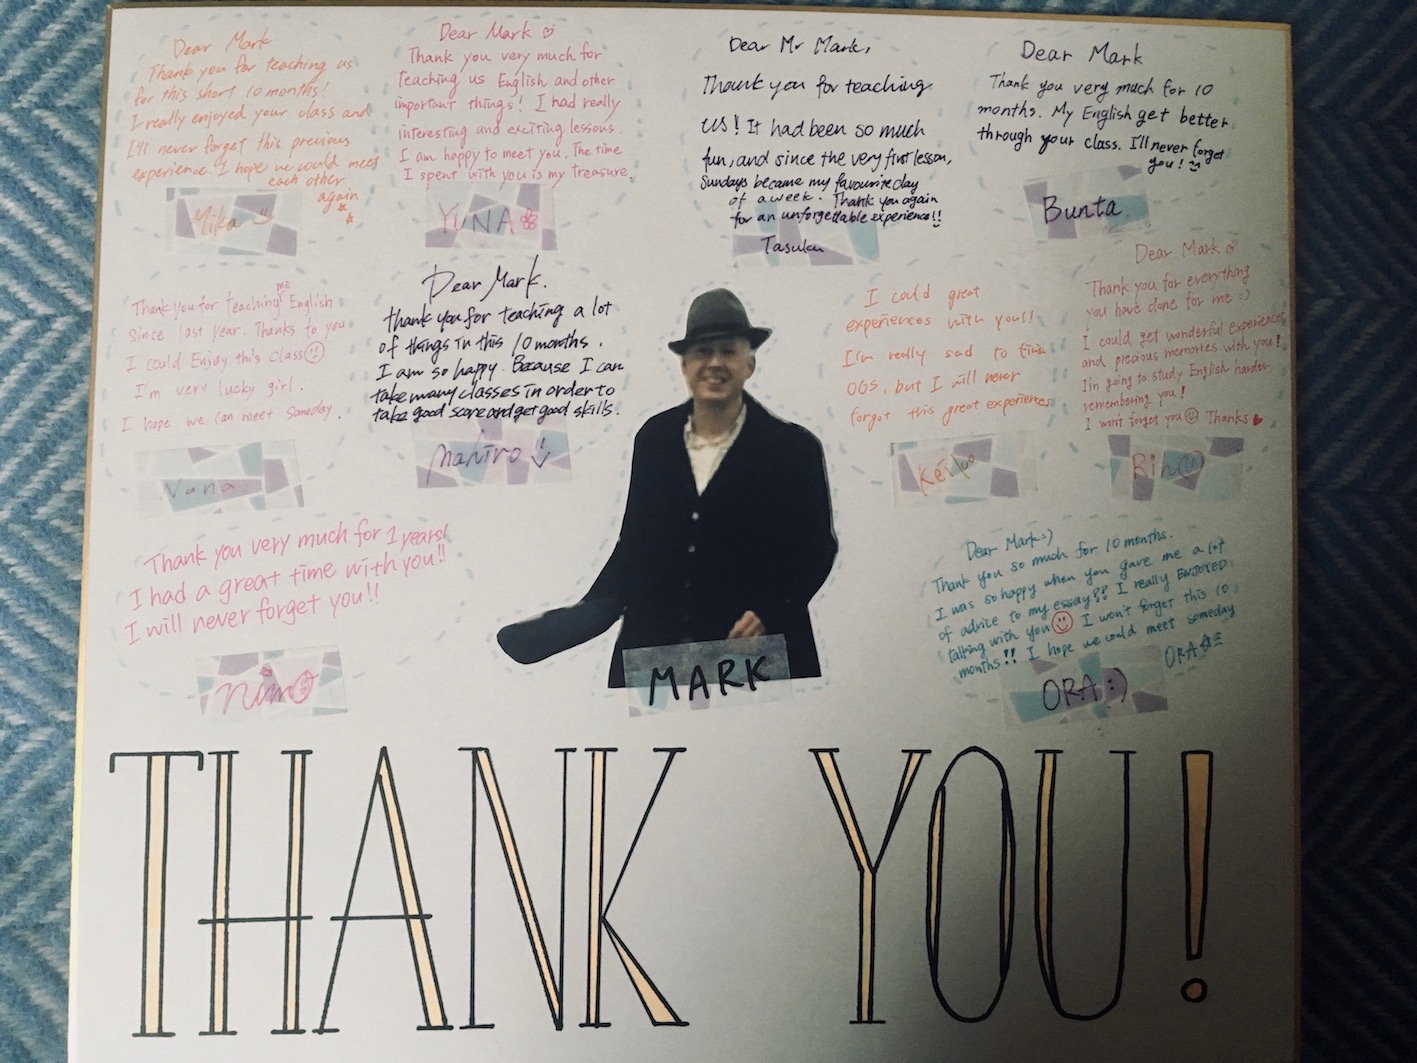 Dear Mark
Thank you for teaching us
for this short 10 months!
I really enjoyed your class and
I'll never forget this precious
experience. I hope we could meet
each other
again
Mika
Dear Mark
Thank you very much for
teaching us English and other
important things! I had really
interesting and exciting lessons.
I am happy to meet you. The time
I spent with you is my treasure.
YUNA
Dear Mr Mark,
Thank you for teaching
us! It had been so much
fun, and since the very first lesson,
Sundays became my favourite day
of a week. Thank you again
for an unforgettable experience!!
Tasuku
Dear Mark
Thank you very much for 10
months. My English get better
through your class. I'll never forget
you!
Bunta
Thank you for teaching me English
since last year. Thanks to you
I could Enjoy this class
I'm very lucky girl.
I hope we can meet someday.
Vana
Dear Mark.
thank you for teaching a lot
of things in this 10 months.
I am so happy. Because I can
take many classes in order to
take good score and get good skills.
I could great
experiences with you!!
I'm really sad to
OGS, but I will never
forgot this great experiences
Dear Mark
Thank you for everything
you have done for me :)
I could get wonderful experiences
and precious memories with you!
I'm going to study English harder
remembering you!
I won't forget you Thanks
Thank you very much for 1 years!
I had a great time with you!!
I will never forget you!!
Dear Mark:)
Thank you so much for 10 months.
I was so happy when you gave me a lot
of advice to my essay!! I really ENJOYED
talking with you I won't forget this 10
months!! I hope we could meet someday
ORA
ORA :)
MARK
THANK YOU!